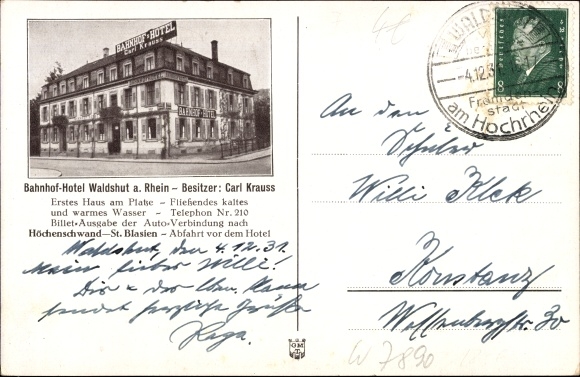 BAHNHOF-HOTEL
Carl Krauss
BAHNHOF-HOTEL
Bahnhof-Hotel Waldshut a. Rhein – Besitzer: Carl Krauss
Erstes Haus am Platze – Fließendes kaltes
und warmes Wasser – Telephon Nr. 210
Billet-Ausgabe der Auto-Verbindung nach
Höchenschwand–St. Blasien – Abfahrt vor dem Hotel
Waldshut, den 4.12.31.
Mein lieber Willi!
Dir & der lben. Mama
sendet herzliche Grüße
Papa.
GM
T
4.12.3
am Hochrhein
8 8
An den
Schüler
Willi Klek
Konstanz
Wessenbergstr. 30
W 7890